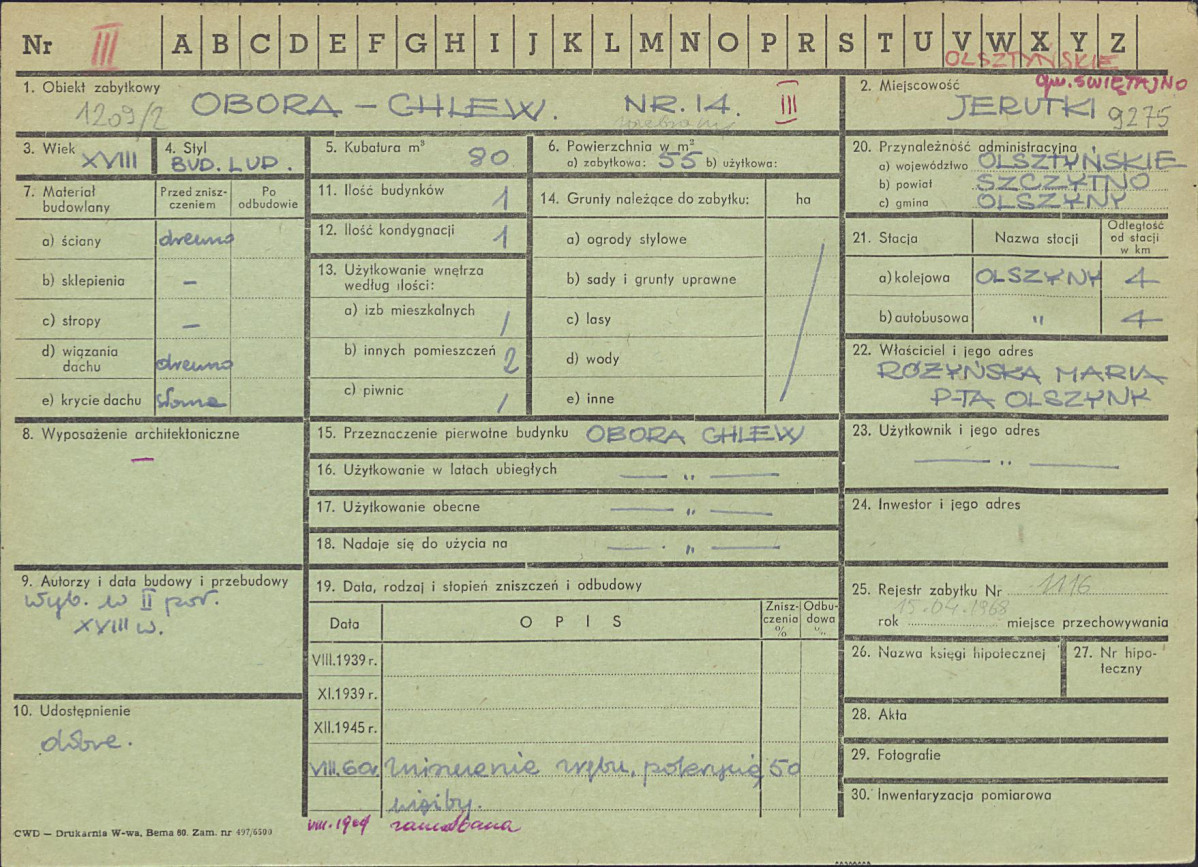 Nr III A B C D E F G H I J K L M N O P R S T U V W X Y Z
OLSZTYŃSKIE
gm. ŚWIĘTAJNO
1. Obiekt zabytkowy
1209/2 OBORA – CHLEW. NR. 14. III
2. Miejscowość
JERUTKI 9275
3. Wiek
XVIII
4. Styl
BUD. LUD.
5. Kubatura m³
80
6. Powierzchnia w m²
a) zabytkowa: 55 b) użytkowa:
7. Materiał budowlany
Przed zniszczeniem
Po odbudowie
a) ściany drewno
b) sklepienia –
c) stropy –
d) wiązania dachu drewno
e) krycie dachu słoma
8. Wyposażenie architektoniczne
–
9. Autorzy i data budowy i przebudowy
wyb. w II poł.
XVIII w.
10. Udostępnienie
dobre.
11. Ilość budynków 1
12. Ilość kondygnacji 1
13. Użytkowanie wnętrza
według ilości:
a) izb mieszkalnych /
b) innych pomieszczeń 2
c) piwnic /
14. Grunty należące do zabytku: ha
a) ogrody stylowe
b) sady i grunty uprawne
c) lasy
d) wody
e) inne
15. Przeznaczenie pierwotne budynku OBORA CHLEW
16. Użytkowanie w latach ubiegłych — „ —
17. Użytkowanie obecne — „ —
18. Nadaje się do użycia na — „ —
19. Data, rodzaj i stopień zniszczeń i odbudowy
Data OPIS Zniszczenia % Odbudowa %
VIII.1939 r.
XI.1939 r.
XII.1945 r.
VIII.60r. zniszczenie zrębu, pokrycia, 50
więźby.
VIII.1969
20. Przynależność administracyjna
a) województwo OLSZTYŃSKIE
b) powiat SZCZYTNO
c) gmina OLSZYNY
21. Stacja Nazwa stacji Odległość od stacji w km
a) kolejowa OLSZYNY 4
b) autobusowa „ 4
22. Właściciel i jego adres
RÓŻYŃSKA MARIA
P-TA OLSZYNK
23. Użytkownik i jego adres
— „ —
24. Inwestor i jego adres
25. Rejestr zabytku Nr 1116
15.04.1968
rok miejsce przechowywania
26. Nazwa księgi hipotecznej
27. Nr hipoteczny
28. Akta
29. Fotografie
30. Inwentaryzacja pomiarowa
CWD — Drukarnia W-wa, Bema 60. Zam. nr 497/6500